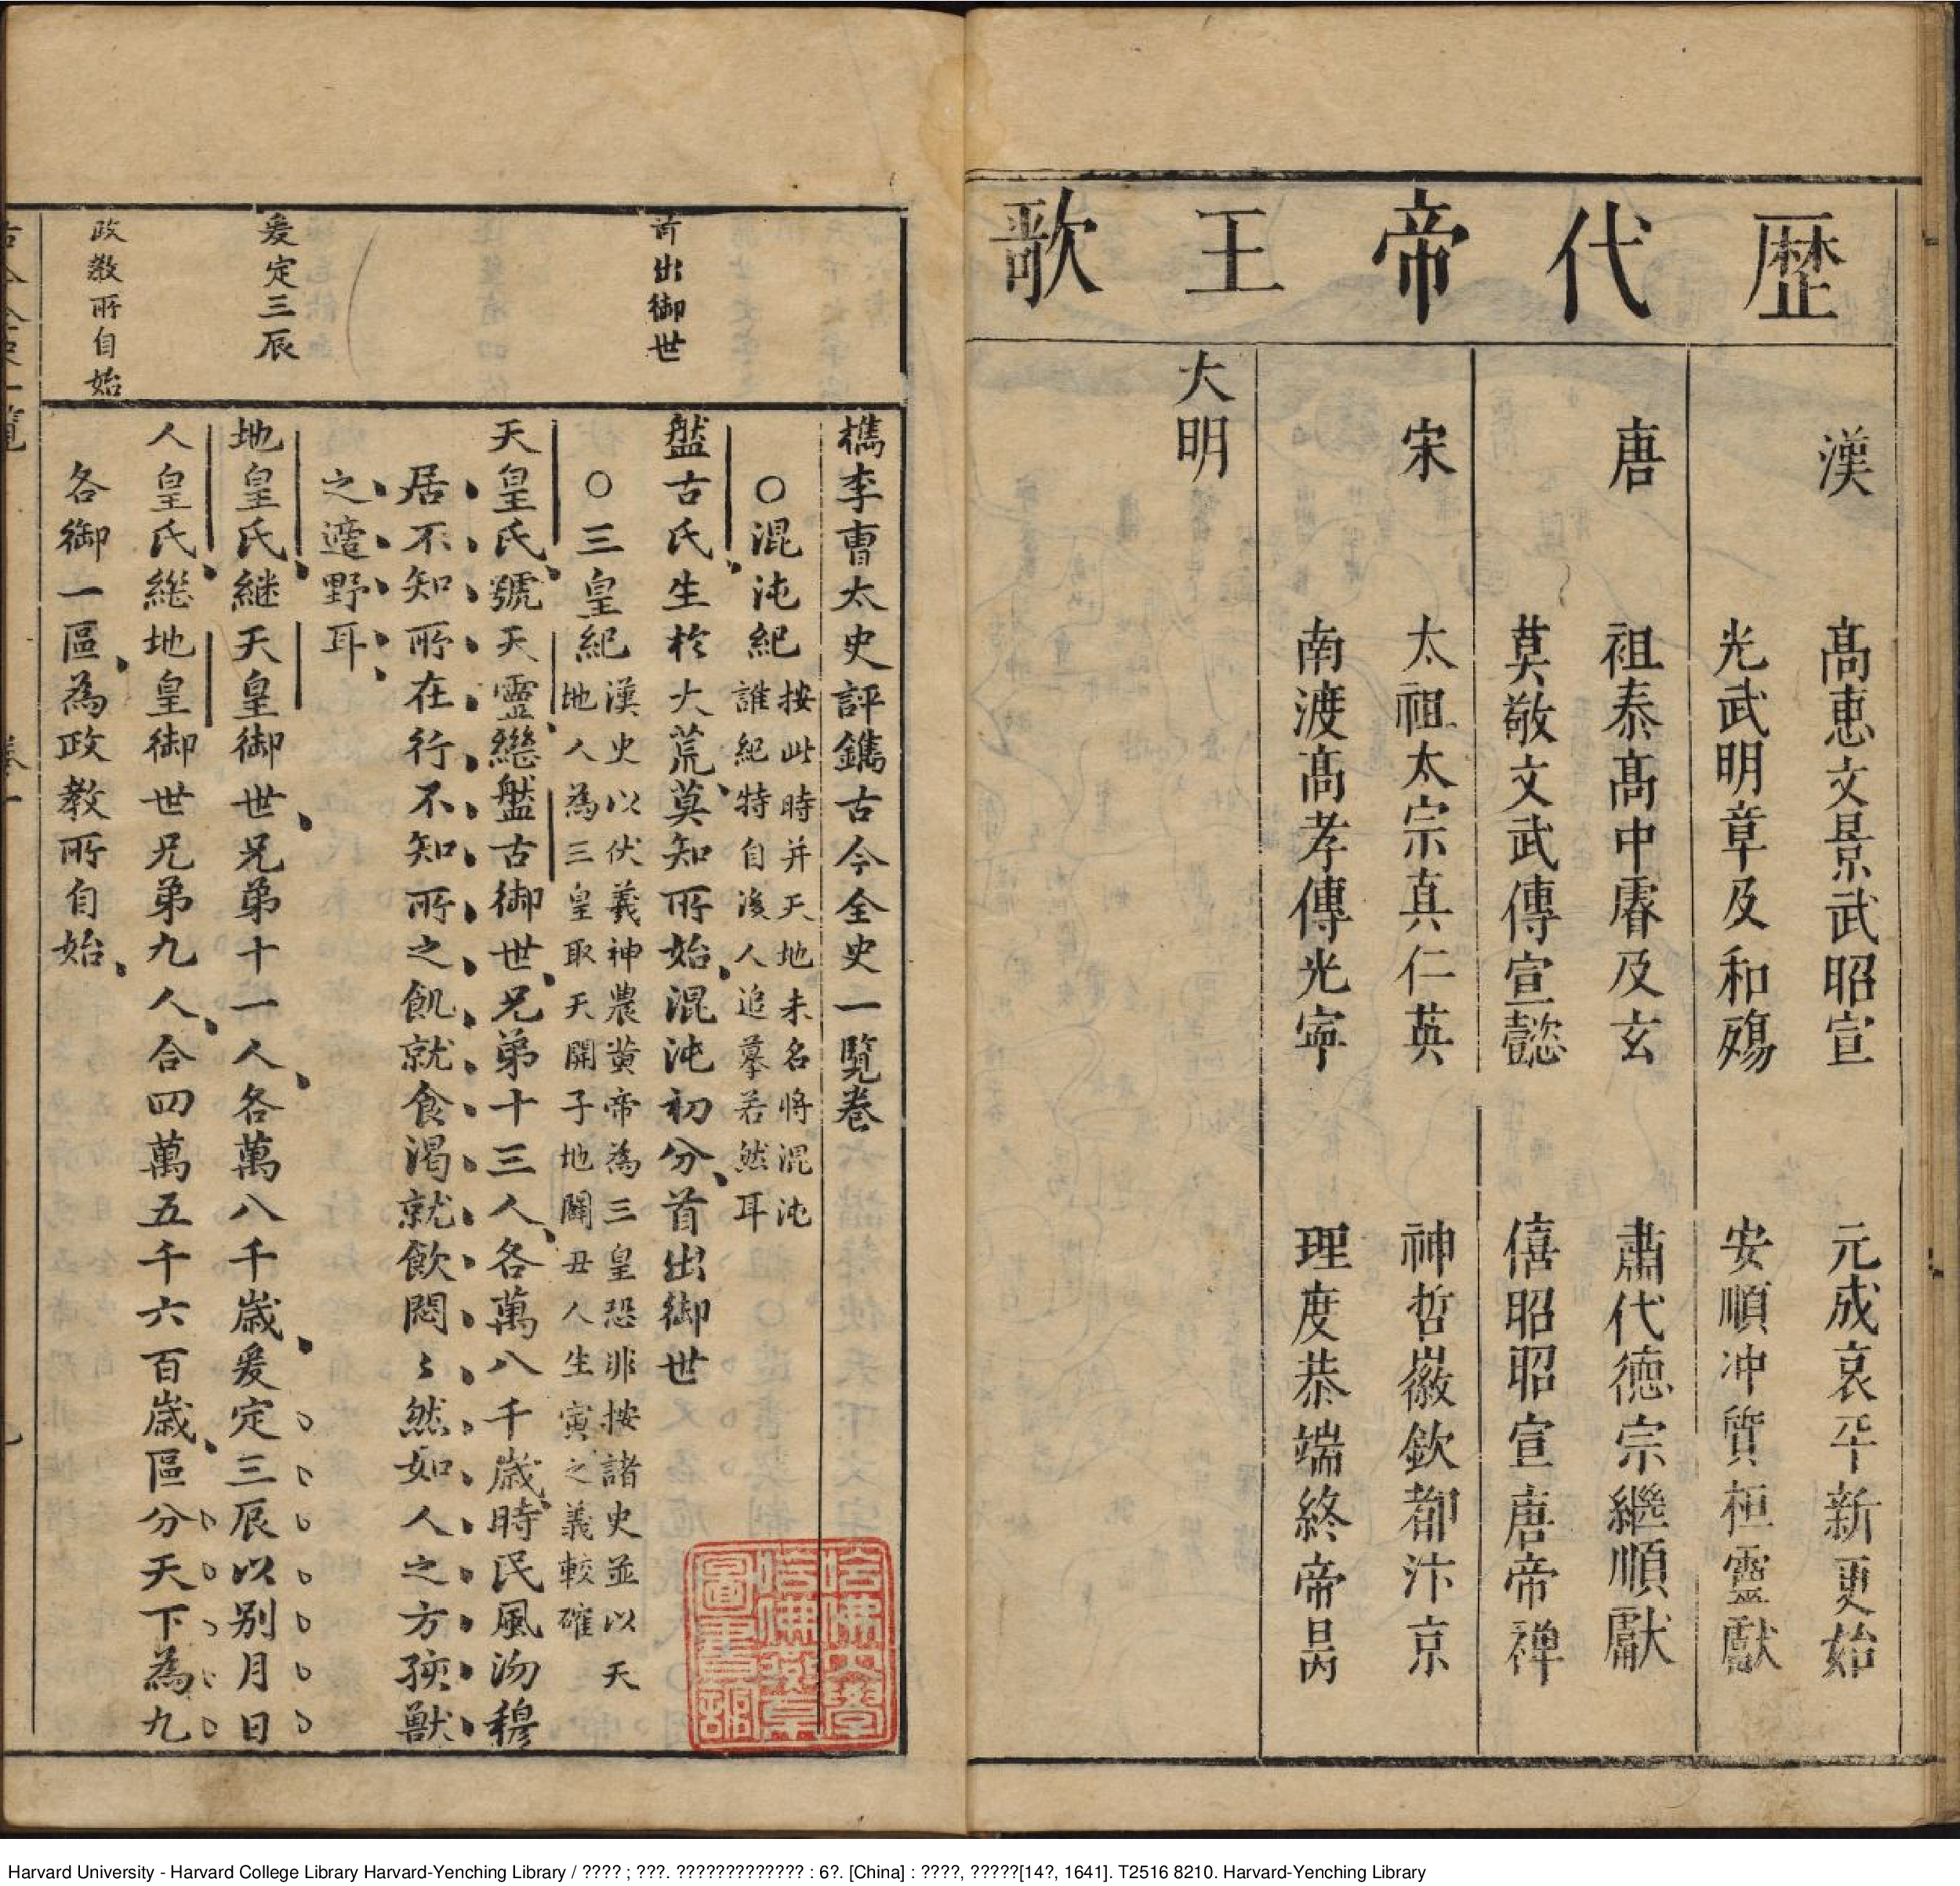 歷代帝王歌
漢 高惠文景武昭宣 元成哀平新更始
光武明章及和殤 安順冲質桓靈獻
唐 祖泰高中睿及玄 肅代德宗繼順獻
莫敬文武傳宣懿 僖昭昭宣唐帝禪
宋 太祖太宗真仁英 神哲徽欽都汴京
南渡高孝傳光寧 理度恭端終帝昺
大明
首出御世
爰定三辰
政教所自始
檇李曹太史評鐫古今全史一覽卷
○混沌紀 按此時并天地未名將混沌
誰紀特自後人追摹若然耳
盤古氏生於大荒莫知所始混沌初分首出御世
○三皇紀 漢史以伏羲神農黄帝為三皇恐非按諸史並以天
地人為三皇取天開子地闢丑人生寅之義較確
天皇氏號天靈繼盤古御世兄弟十三人各萬八千歲時民風沕穆
居不知所在行不知所之飢就食渴就飲悶〻然如人之方孩獸
之適野耳
地皇氏継天皇御世兄弟十一人各萬八千歲爰定三辰以别月日
人皇氏繼地皇御世兄弟九人合四萬五千六百歲區分天下為九
各御一區為政教所自始
哈佛大學
哈佛燕京
圖書館
Harvard University - Harvard College Library Harvard-Yenching Library / ???? ; ???. ????????????? : 6?. [China] : ????, ?????[14?, 1641]. T2516 8210. Harvard-Yenching Library